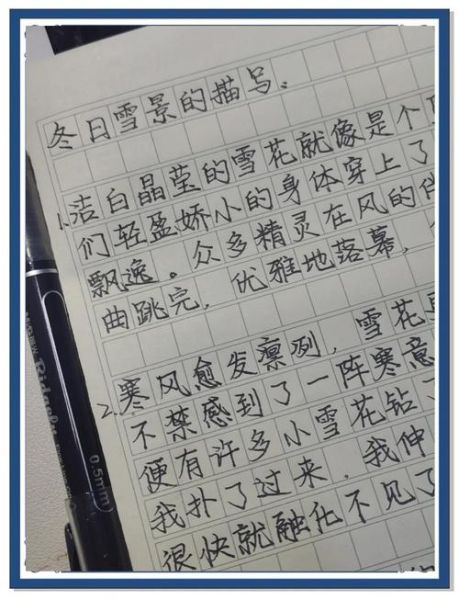 冬日雪景的描写。
1.洁白晶莹的雪花就像是个
们轻盈娇小的身体穿上了
飘逸。众多精灵在风的伴
曲跳完,优雅地落幕,
2.寒风愈发凛冽,雪花
不禁感到了一阵寒意
便有许多小雪花钻
我扑了过来,我伸
很快就融化不见了
0.5mm